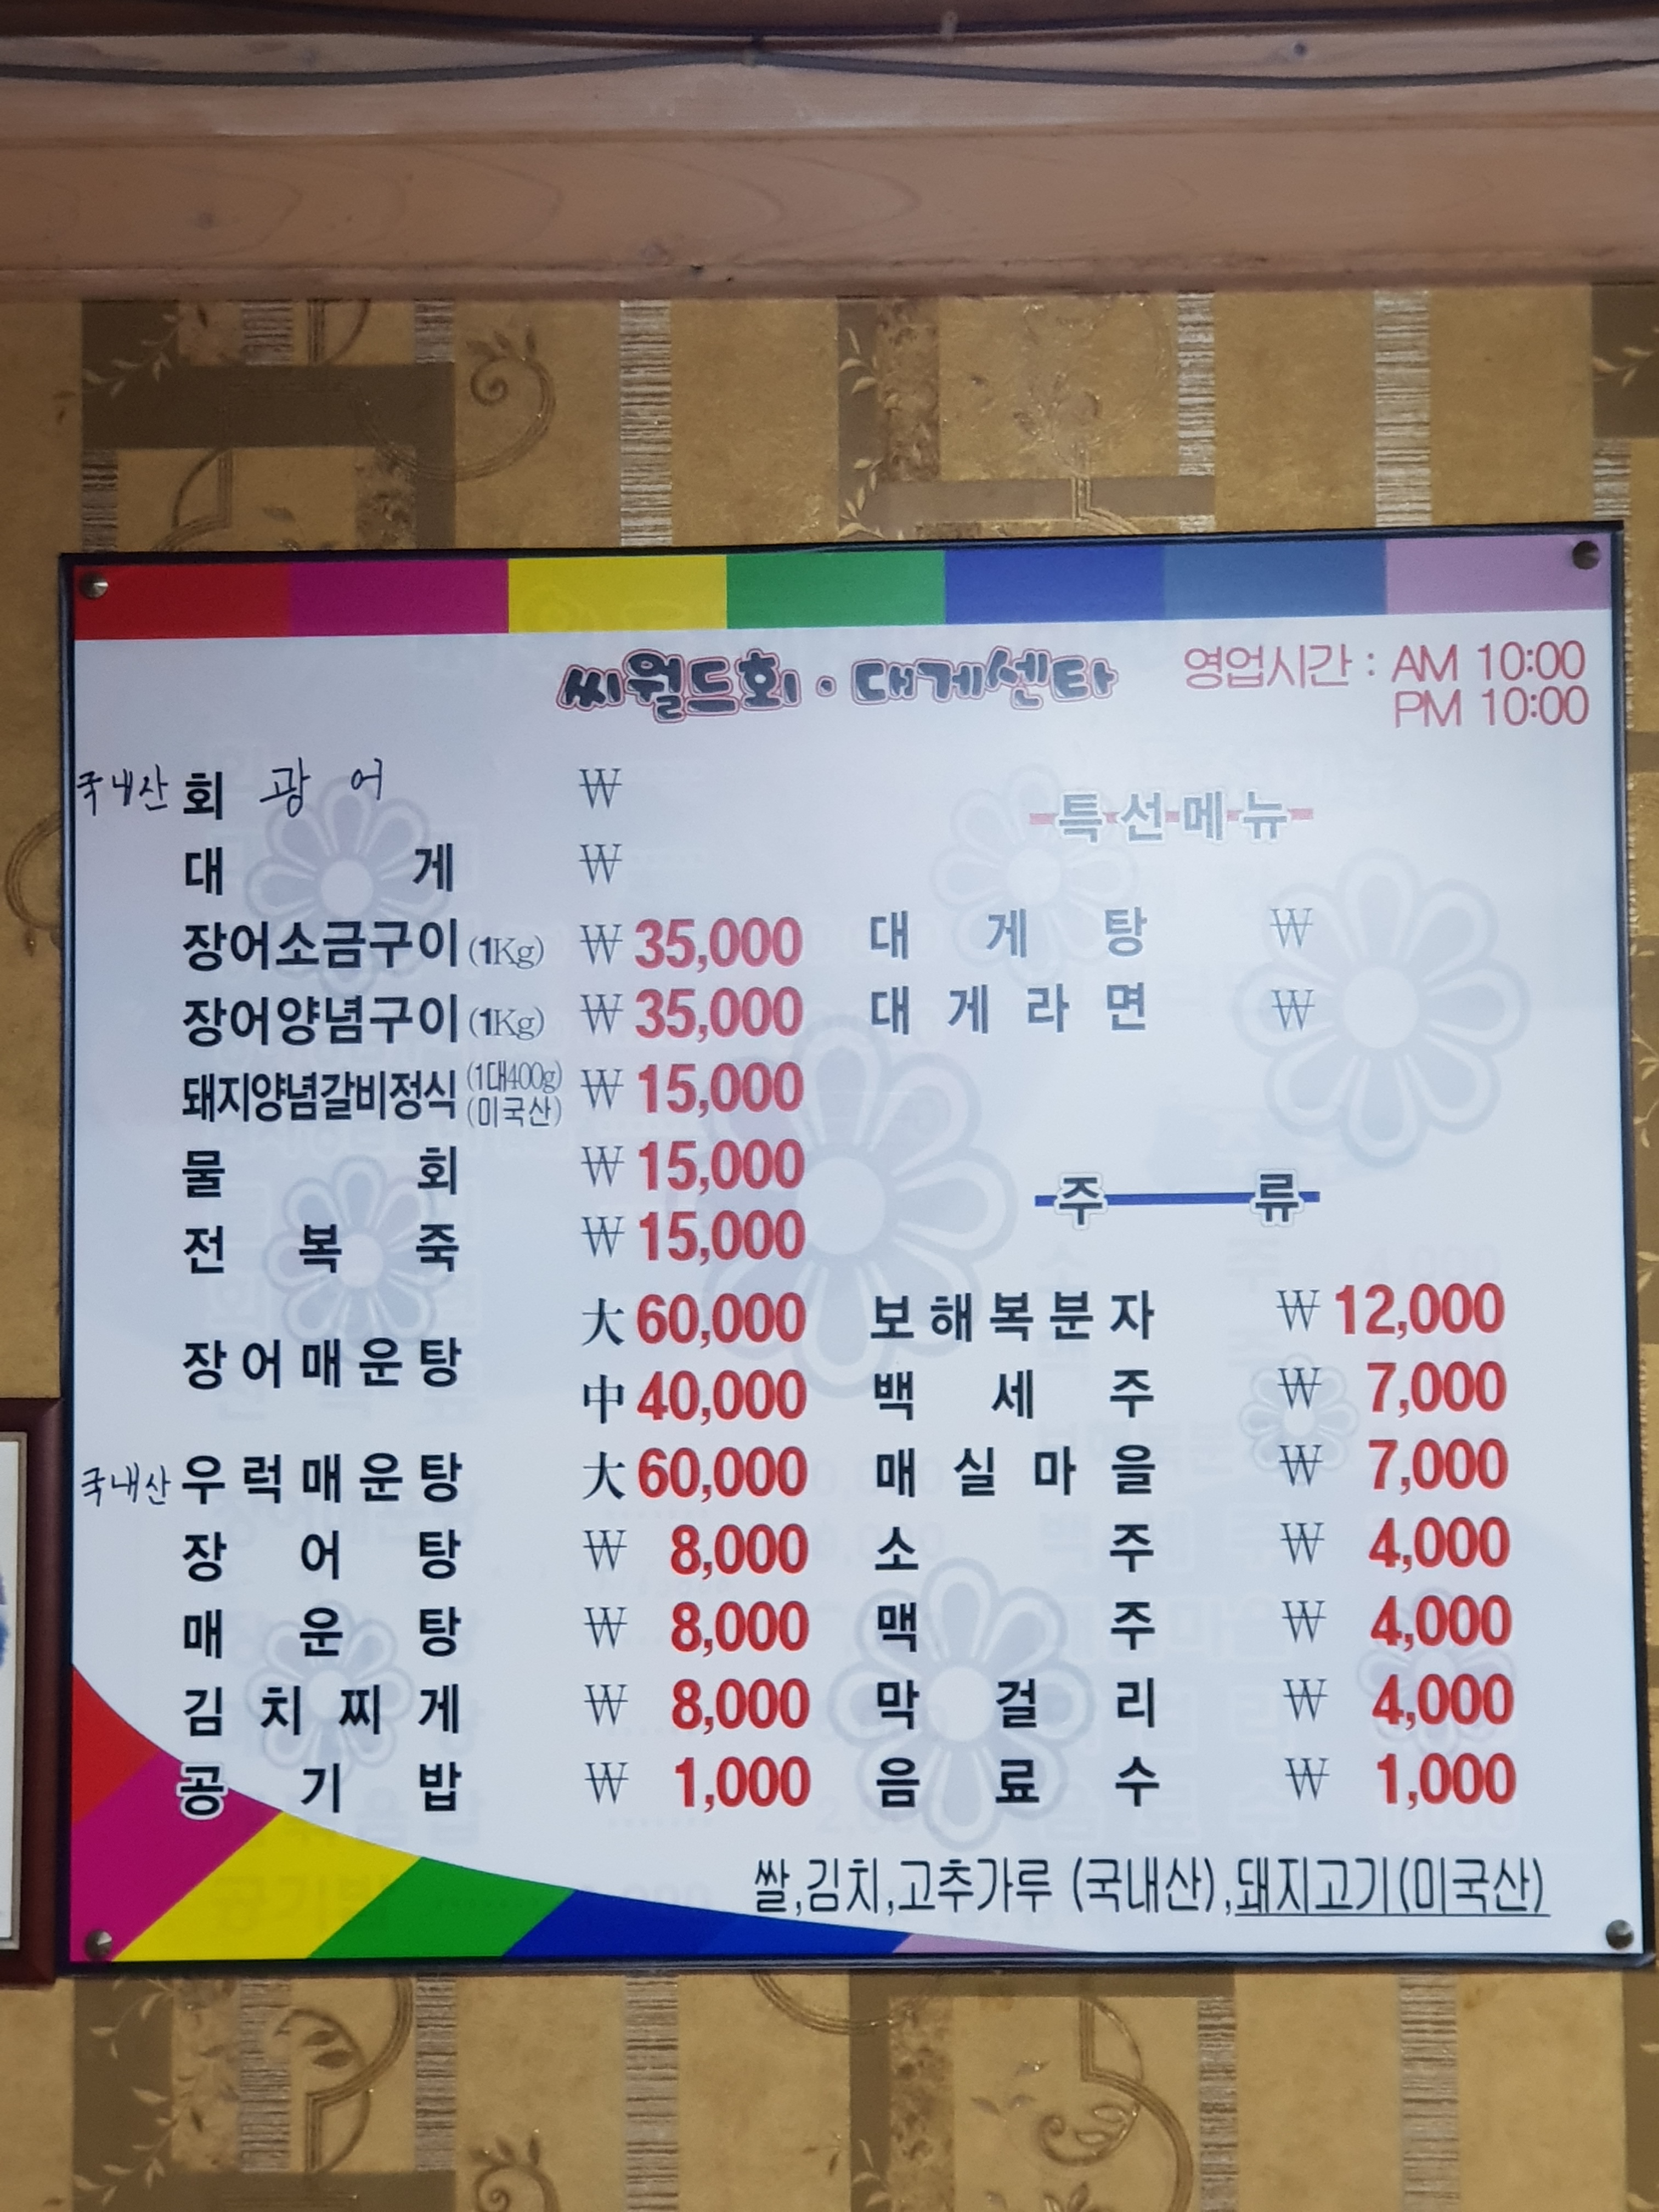 씨월드회·대게센타
영업시간 : AM 10:00
PM 10:00
국내산 회 광어 ₩
대게 ₩
장어소금구이 (1Kg) ₩ 35,000
장어양념구이 (1Kg) ₩ 35,000
돼지양념갈비정식 (1대400g) (미국산) ₩ 15,000
물회 ₩ 15,000
전복죽 ₩ 15,000
장어매운탕 大 60,000
中 40,000
국내산 우럭매운탕 大 60,000
장어탕 ₩ 8,000
매운탕 ₩ 8,000
김치찌게 ₩ 8,000
공기밥 ₩ 1,000
특선메뉴
대게탕 ₩
대게라면 ₩
주류
보해복분자 ₩ 12,000
백세주 ₩ 7,000
매실마을 ₩ 7,000
소주 ₩ 4,000
맥주 ₩ 4,000
막걸리 ₩ 4,000
음료수 ₩ 1,000
쌀,김치,고추가루 (국내산),돼지고기(미국산)